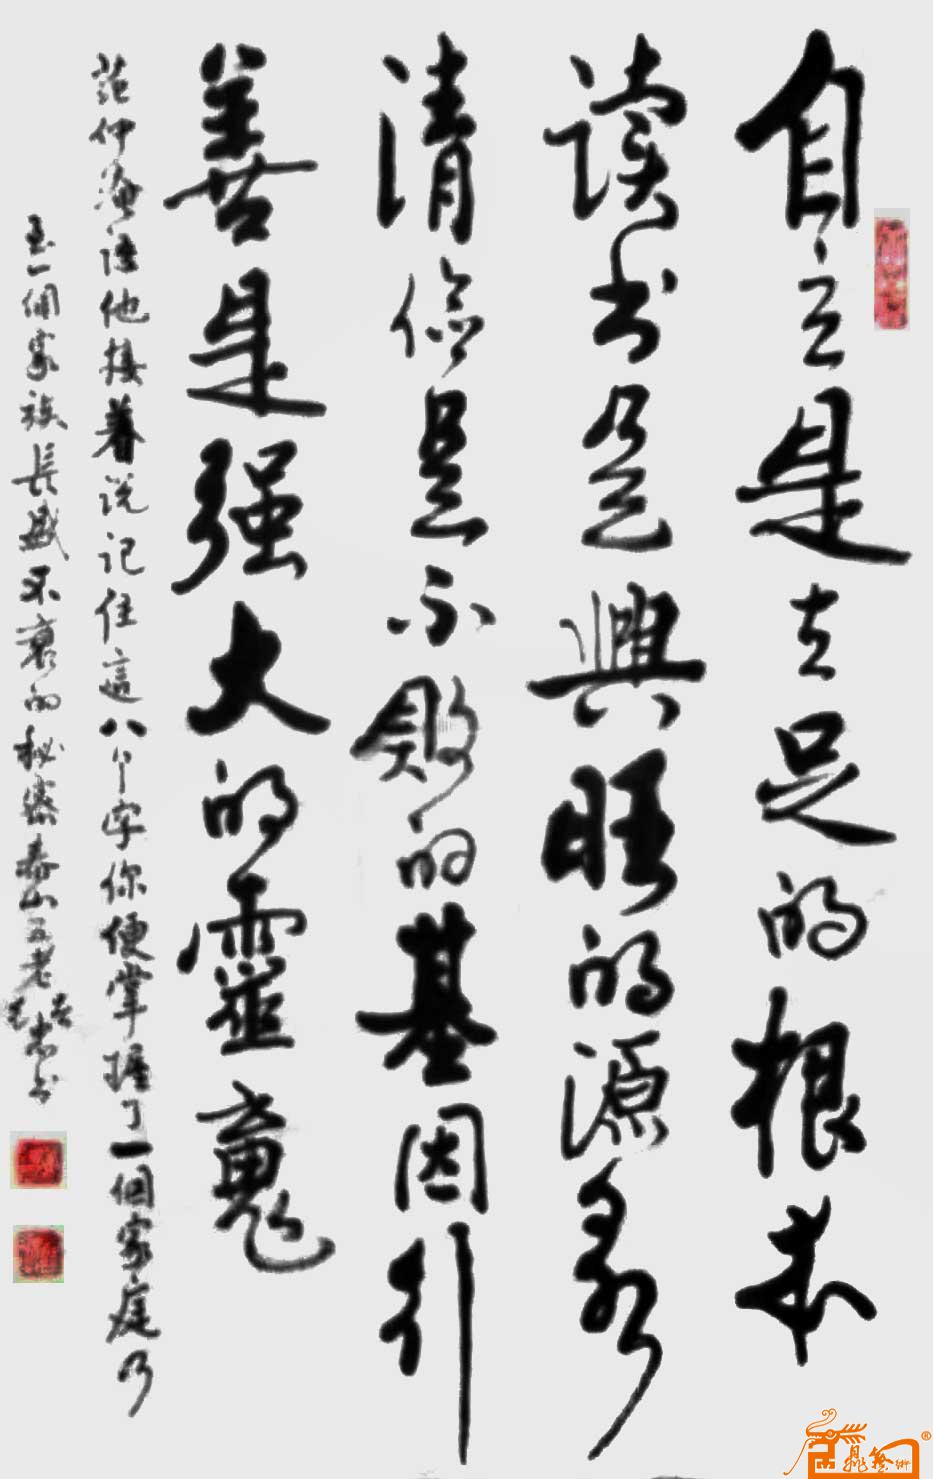 自立是立足的根本
读书是興旺的源泉
清俭是不败的基因行
善是强大的靈魂
范仲淹語他接着说记住這八个字你便掌握了一個家庭乃
至一個家族長盛不衰的秘密泰山老书